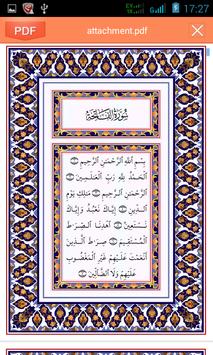 17:27
PDF
attachment.pdf
سُورَةُ الْفَاتِحَةِ
بِسْمِ اللَّهِ الرَّحْمَٰنِ الرَّحِيمِ ۝
الْحَمْدُ لِلَّهِ رَبِّ الْعَالَمِينَ ۝
الرَّحْمَٰنِ الرَّحِيمِ ۝ مَالِكِ يَوْمِ
الدِّينِ ۝ إِيَّاكَ نَعْبُدُ وَإِيَّاكَ
نَسْتَعِينُ ۝ اهْدِنَا الصِّرَاطَ
الْمُسْتَقِيمَ ۝ صِرَاطَ الَّذِينَ
أَنْعَمْتَ عَلَيْهِمْ غَيْرِ الْمَغْضُوبِ
عَلَيْهِمْ وَلَا الضَّالِّينَ ۝